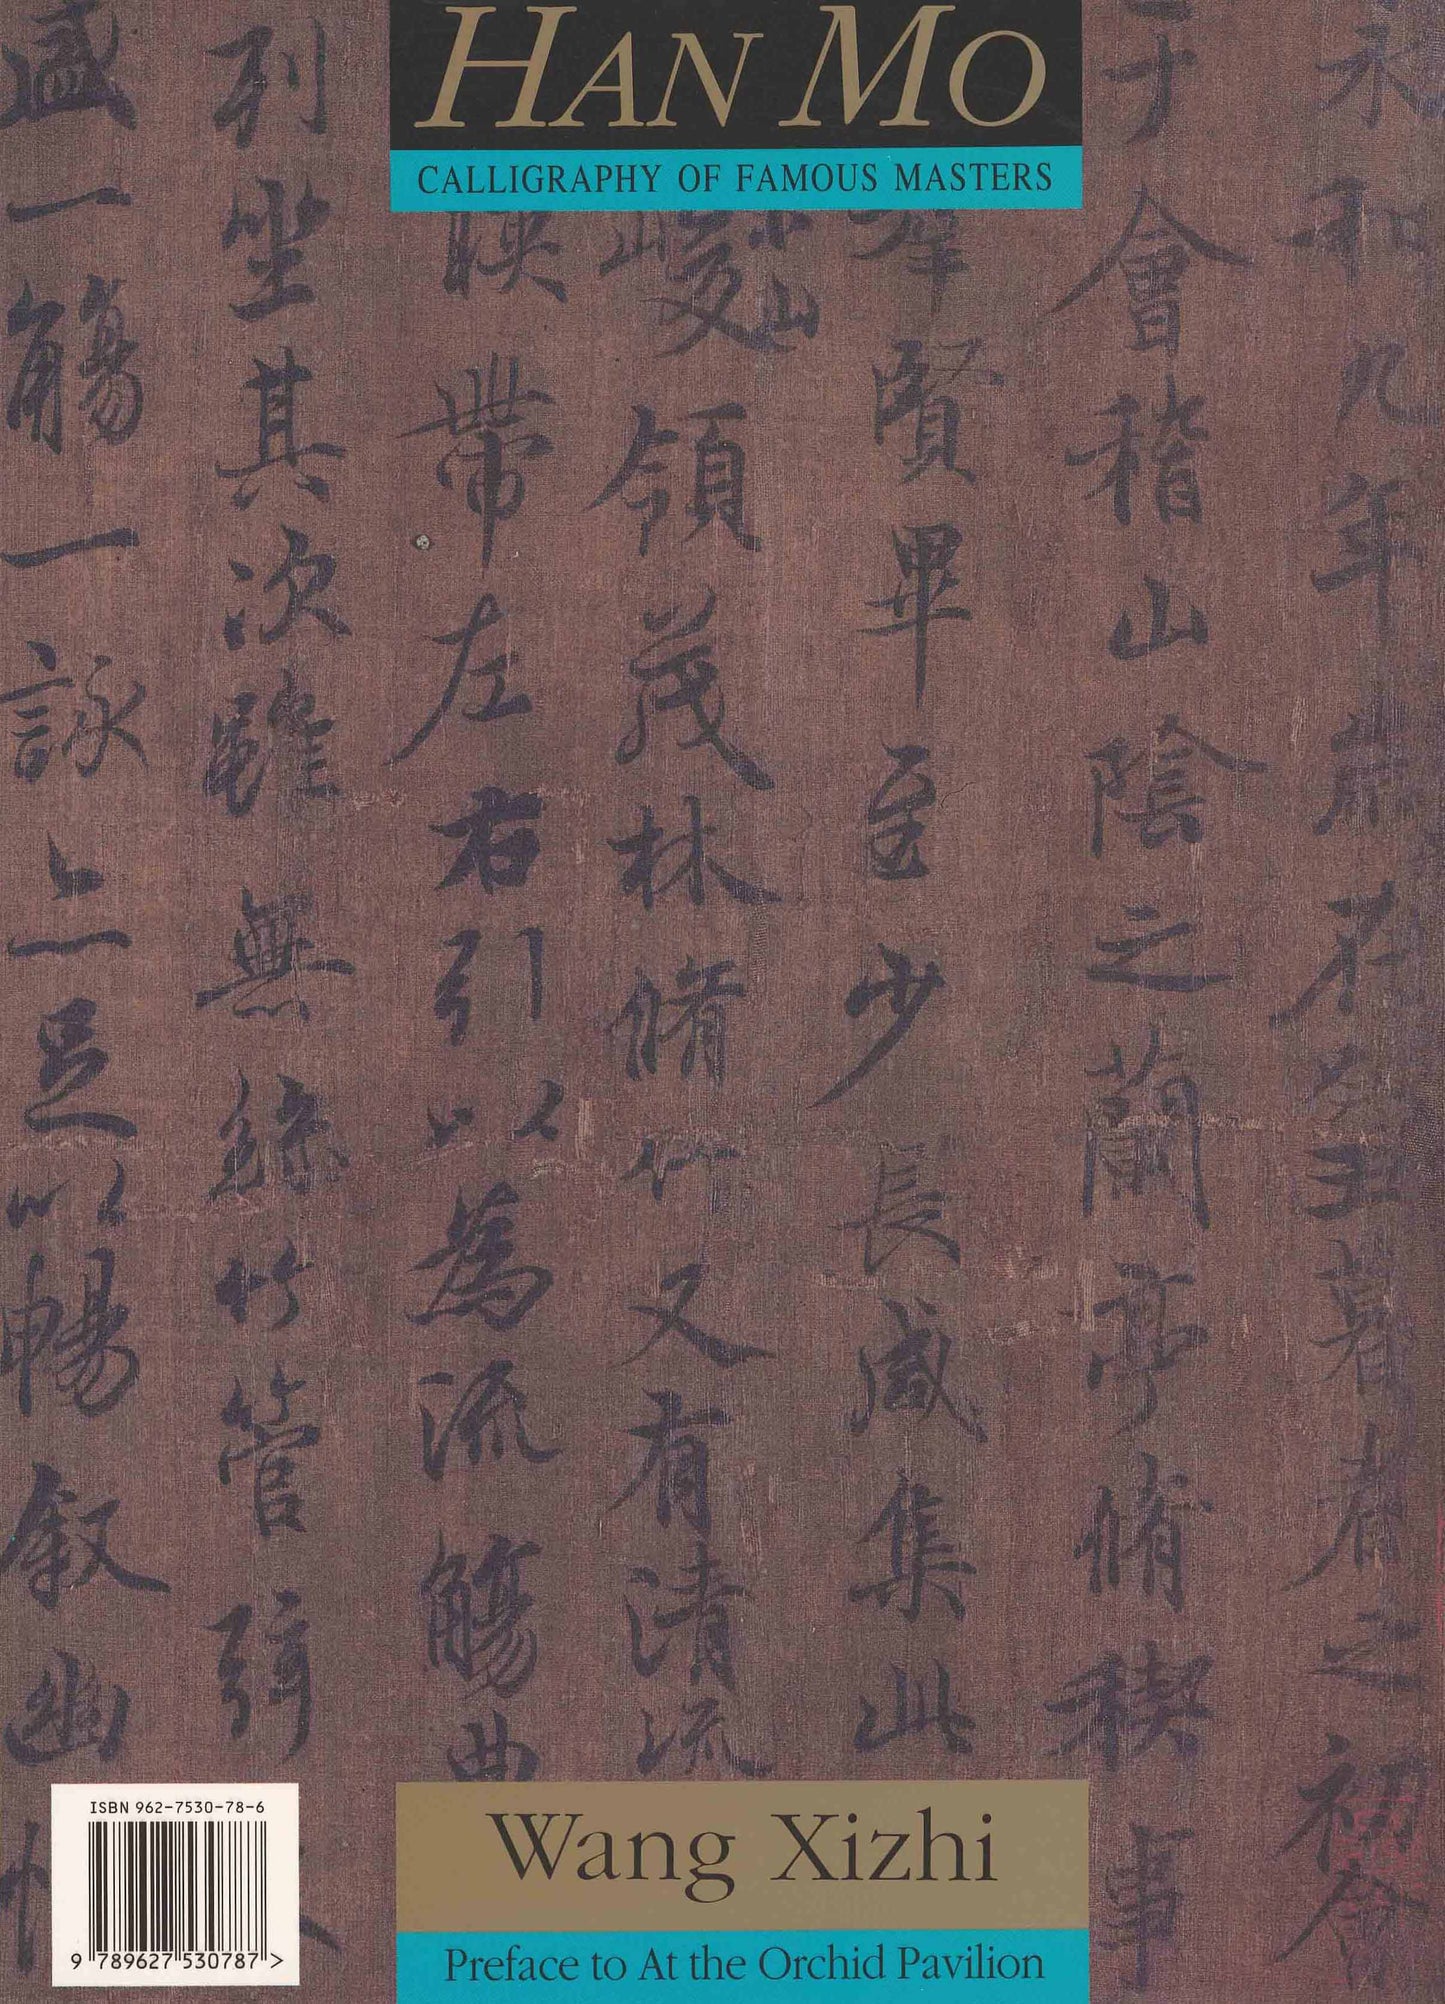 HAN MO
CALLIGRAPHY OF FAMOUS MASTERS
永和九年歲在癸丑暮春之初會
于會稽山陰之蘭亭脩禊事
羣賢畢至少長咸集此
山峻領茂林脩竹又有清流
映帶左右引以為流觴曲
列坐其次雖無絲竹管弦
盛一觴一詠亦足以暢叙幽
Wang Xizhi
Preface to At the Orchid Pavilion
ISBN 962-7530-78-6
9 789627 530787 >